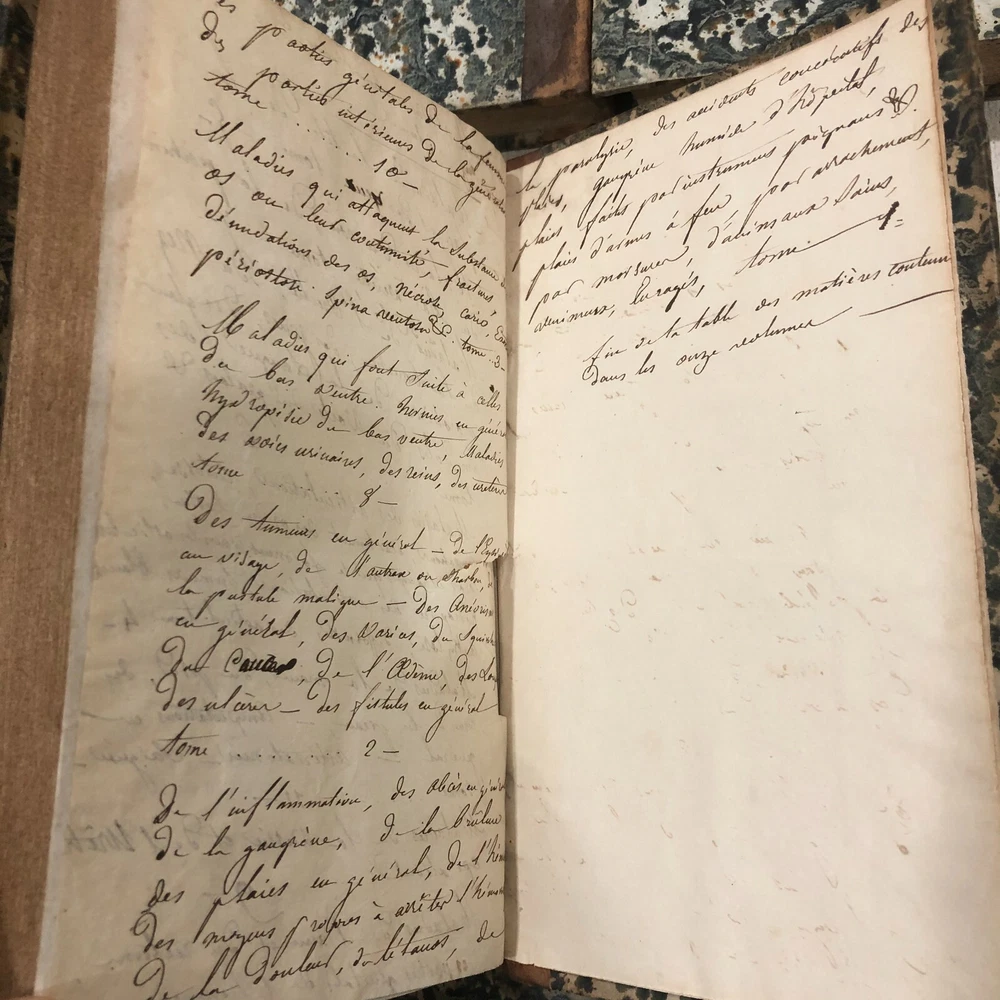 des parties génitales de la femme
des parties intérieures de la génération
tome ........ 10 —
Maladies qui attaquent la Substance des
os ou leur continuité, fractures,
dénudations des os, nécrose, carie,
périostose. Spina ventosa &c. tome. 3-
Maladies qui font Suite à celles
du bas ventre. hernies en général
hydropisie du bas ventre, Maladies
des voies urinaires, des reins, des uretères
tome 8 —
Des tumeurs en général — de l'Erysipèle
au visage, de l'antrax ou charbon, de
la pustule maligne — Des Anévrismes
en général, des Varices, du Squirrhe
du Cancer, de l'Œdème, des
des ulcères — des fistules en général
tome ........ 2 —
De l'inflammation, des abcès en général
de la gangrène, de la brûlure
des plaies en général, de l'hém
des moyens propres à arrêter l'hémor
de la Douleur, du tétanos, de
la paralysie, des accidents consécutifs des
plaies, gangrène humide d'hôpital,
plaies faites par instrumens poignans &c.
plaies d'armes à feu, par arrachement,
par morsures, d'animaux Sains,
venimeux, Enragés, tome. 1-
fin de la table des matières contenues
dans les onze volumes —